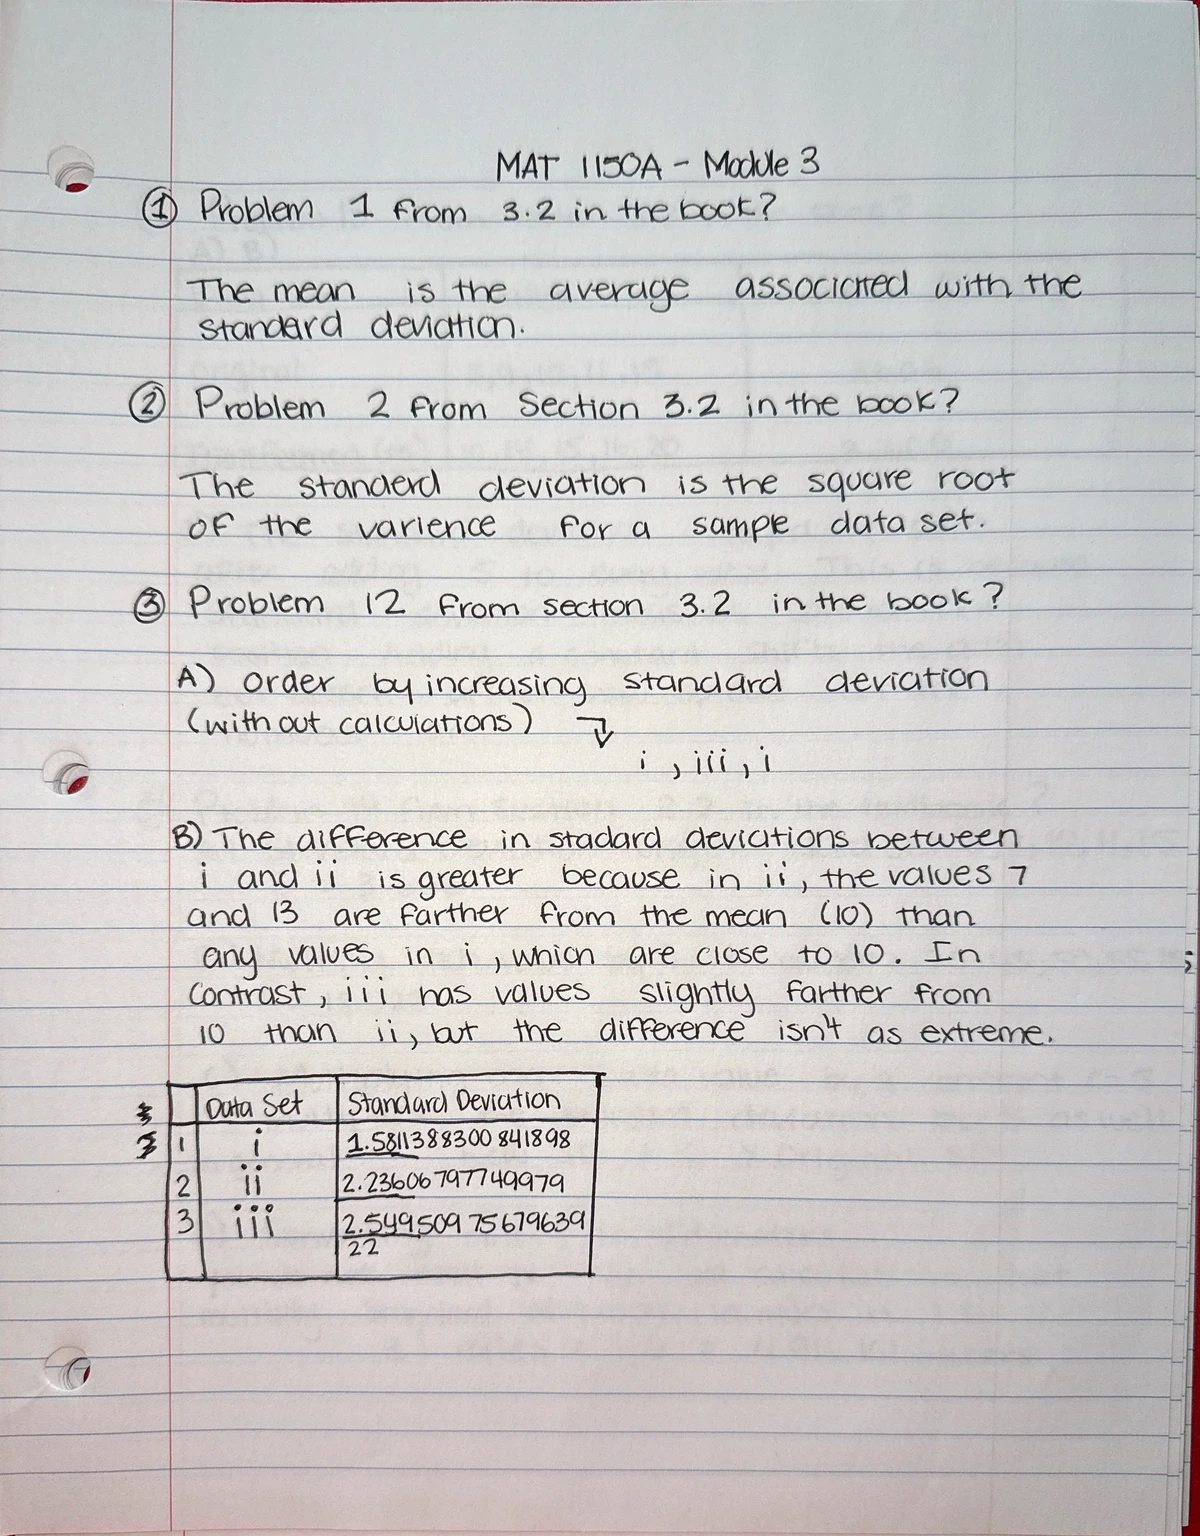 MAT 1150A - Module 3
① Problem 1 from 3.2 in the book?
The mean is the average associated with the
standard deviation.
② Problem 2 from Section 3.2 in the book?
The standerd deviation is the square root
of the varience for a sample data set.
③ Problem 12 from section 3.2 in the book?
A) order by increasing standard deviation
(without calculations) ↴
i, iii, i
B) The difference in stadard deviations between
i and ii is greater because in ii, the values 7
and 13 are farther from the mean (10) than
any values in i, which are close to 10. In
contrast, iii has values slightly farther from
10 than ii, but the difference isn't as extreme.
Data Set Standard Deviation
1 i 1.5811388300841898
2 ii 2.23606797749979
3 iii 2.54950975679639
22